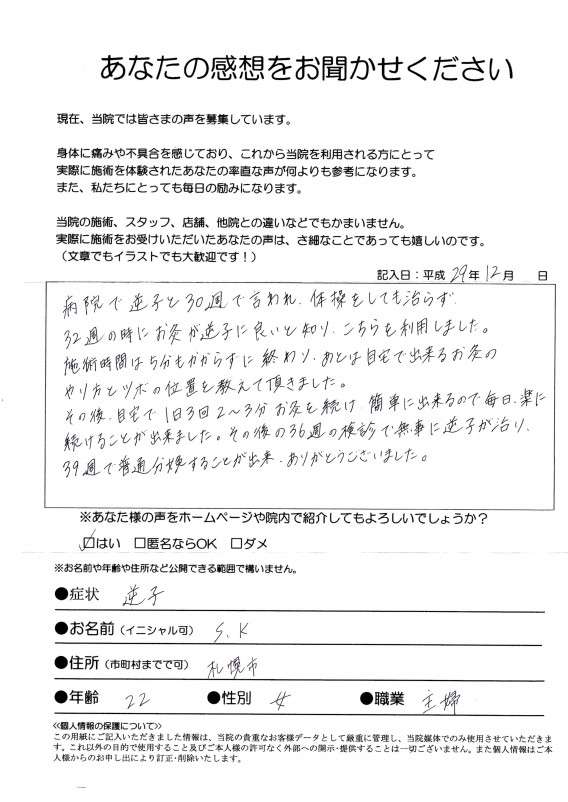 あなたの感想をお聞かせください
現在、当院では皆さまの声を募集しています。
身体に痛みや不具合を感じており、これから当院を利用される方にとって
実際に施術を体験されたあなたの率直な声が何よりも参考になります。
また、私たちにとっても毎日の励みになります。
当院の施術、スタッフ、店舗、他院との違いなどでもかまいません。
実際に施術をお受けいただいたあなたの声は、ささいなことであっても嬉しいのです。
(文章でもイラストでも大歓迎です!)
記入日:平成 29年 12月 日
病院で逆子と30週で言われ、体操をしても治らず、
32週の時にお灸が逆子に良いと知り、こちらを利用しました。
施術時間は5分もかからずに終わり、あとは自宅で出来るお灸の
やり方とツボの位置を教えて頂きました。
その後、自宅で1日3回2~3分お灸を続け、簡単に出来るので毎日、楽に
続けることが出来ました。その後の36週の検診で無事に逆子が治り、
39週で普通分娩することが出来、ありがとうございました。
※あなた様の声をホームページや院内で紹介してもよろしいでしょうか?
☑はい □匿名ならOK □ダメ
※お名前や年齢や住所など公開できる範囲で構いません。
●症状 逆子
●お名前(イニシャル可) S.K
●住所(市町村までで可) 札幌市
●年齢 22 ●性別 女 ●職業 主婦
<<個人情報の保護について>>
この用紙にご記入いただきました情報は、当院の貴重なお客様データとして厳重に管理し、当院媒体でのみ使用させていただきま
す。これ以外の目的で使用すること及びご本人様の許可なく外部への開示・提供することは一切ございません。また個人情報はご本
人様からのお申し出により訂正・削除いたします。